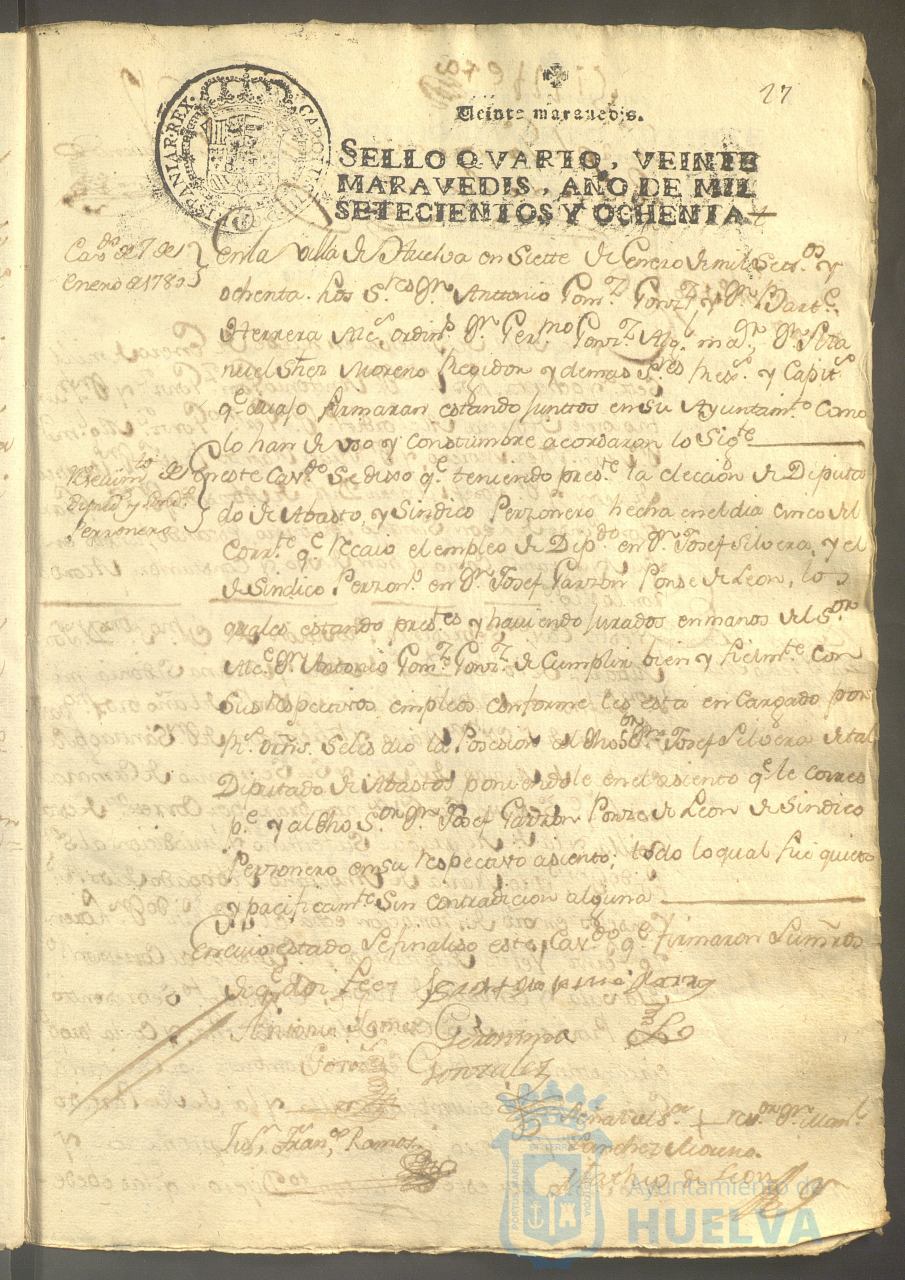 27
Veinte maravedis.
HISPANIAR. REX. CAROL. III D G
SELLO QVARTO, VEINTE
MARAVEDIS, AÑO DE MIL
SETECIENTOS Y OCHENTA
Cavdo de 7 de
Enero de 1780
En la Villa de Huelva en Siette de Henero de mil Setos y
ochenta. Los Sres Dn Anttonio Gomz Gonzz y Dn Barte
Herrera Alces ordins Dn Germo Gonzz Algl mr Dn Ma
nuel Sthez Moreno Rexidor y demas Sres y Capits
qe avajo firmaran estando Junttos en su Ayuntamto Como
lo han de uso y Constumbre acordaron lo Sigte
Recivimto de
Diputdo y Sindco
Perzonero
En este Cavdo Se dixo qe teniendo preste la eleccion de Diputa
do de Abasto, y Sindico Perzonero hecha en el dia cinco del
Corrte qe Recaio el empleo de Dipdo en Dn Josef Silvera, y el
de Sindico Perzono en Dn Josef Garzon Ponze de Leon, lo s
quales estando prestes y haviendo Jurado en manos del Sor
Alce Dn Antonio Gomz Gonzz de Cumplir bien y fielmte con
Sus respectivos empleos conforme les esta en Cargado por
Rs orns. Se les dio la Posesion al dho Sor Dn Josef Silvera de tal
Diputado de Abastos poniendole en el asiento qe le corres
pe y al dho Sor Dn Josef Garzon Ponze de Leon de Sindico
Perzonero en su respectivo asiento, todo lo qual fue quieta
y pacificamte Sin contradicion alguna
En cuio estado Se finalizo este Cavdo qe firmaron Sus mrds
de qe doi fee
Antonio Gomez
Gonz
Geronimo
Gonzalez
Manuel
Sanchez Moreno
Juan Franco Ramos
Matheo de Leon
Ayuntamiento de
HUELVA